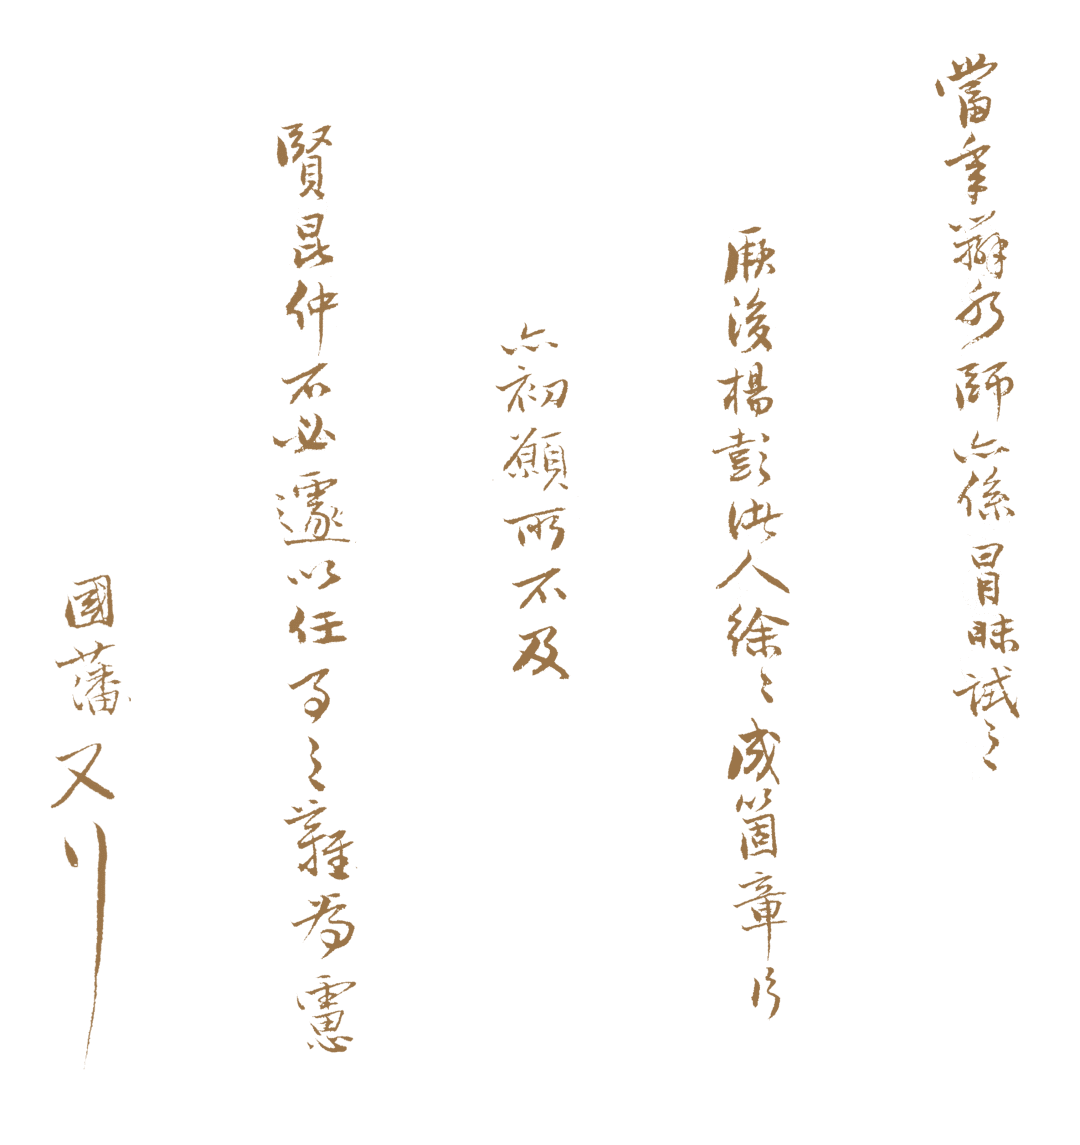 當年辦水師亦係冒昧試之
厥後楊彭諸人徐〻成箇章
亦初願所不及
賢昆仲不必遽以任事之難為慮
國藩又